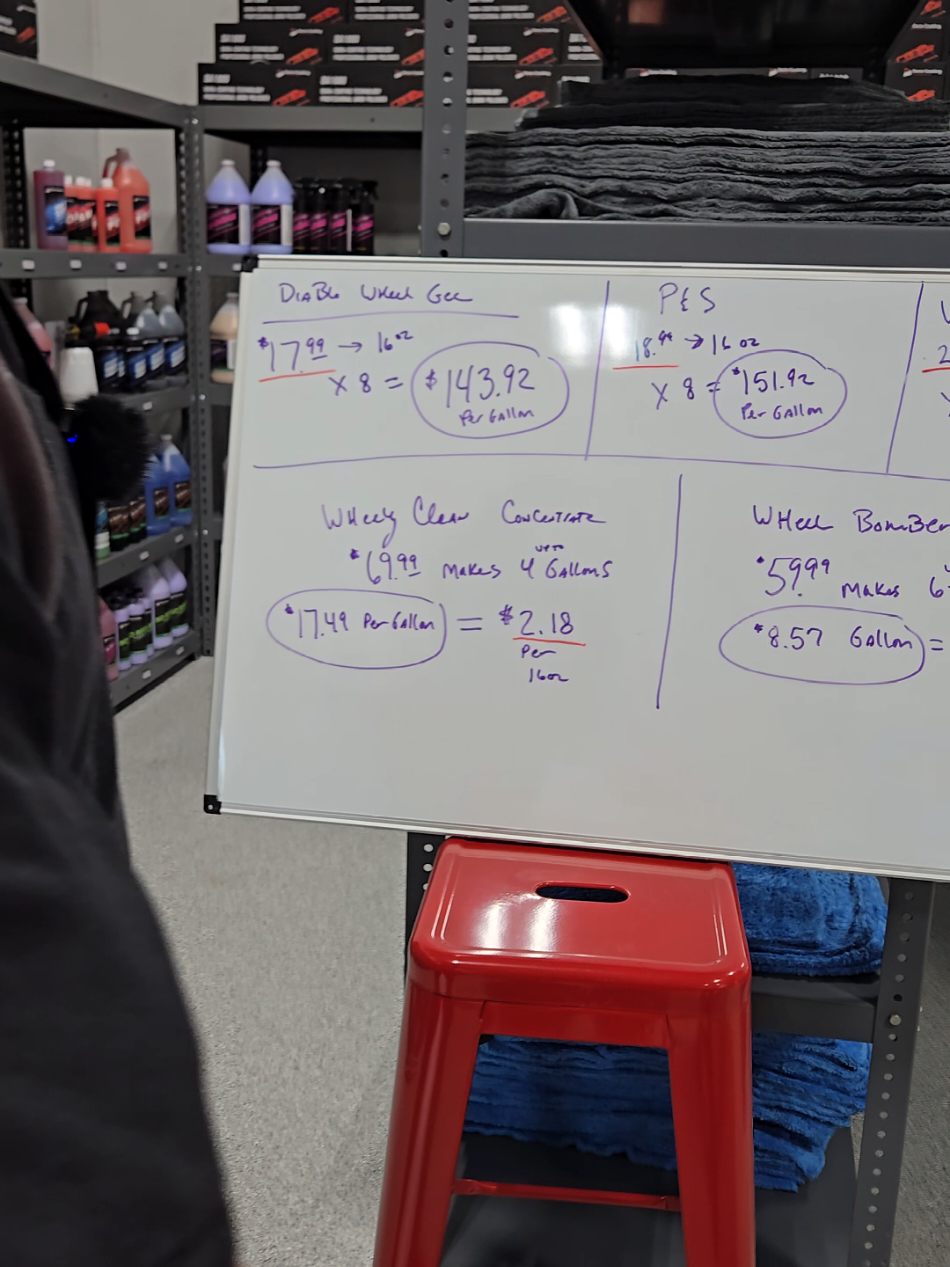 Diablo Wheel Gel
$17.99 → 16 oz
X 8 = $143.92
Per Gallon
P&S
18.99 → 16 oz
X 8 = $151.92
Per Gallon
2
Wheely Clean Concentrate
$69.99 makes up to 4 Gallons
$17.49 Per Gallon = $2.18
Per
16oz
Wheel Bomber
$59.99 makes 6
$8.57 Gallon =